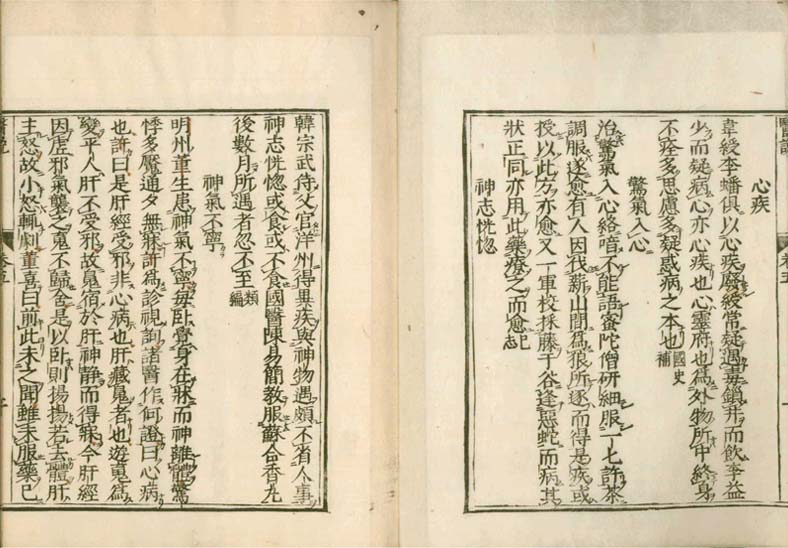 醫説
卷五
心疾
韋綬李蟠俱以心疾廢綬常疑遇毒鎖井而飲李益
少而疑病亦心疾也心靈府也爲外物所中終身
不痊多思慮多疑惑病之本也國史補
驚氣入心
治驚氣入心絡喑不能語蜜陀僧研細服一匕許茶
調服遂愈有人因伐薪山間爲狼所逐而得是疾或
授以此方亦愈又一軍校採藤于谷逢惡蛇而病其
狀正同亦用此藥療之而愈志
神志恍惚
韓宗武侍父官洋州得異疾與神物遇頗不省人事
神志恍惚或食或不食國醫陳易簡教服蘇合香丸
後數月所遇者忽不至類編
神氣不寧
明州董生患神氣不寧每卧魂身在牀而神離體驚
悸多魘通夕無寐許爲診視詢諸醫作何證曰心病
也許曰是肝經受邪非心病也肝藏魂者也遊魂爲
變平人肝不受邪故魂宿於肝神静而得寐今肝經
因虚邪氣襲之魂不歸舍是以卧則揚揚若去體肝
主怒故小怒輒劇董喜曰前此未之聞雖未服藥已
醫説
卷五